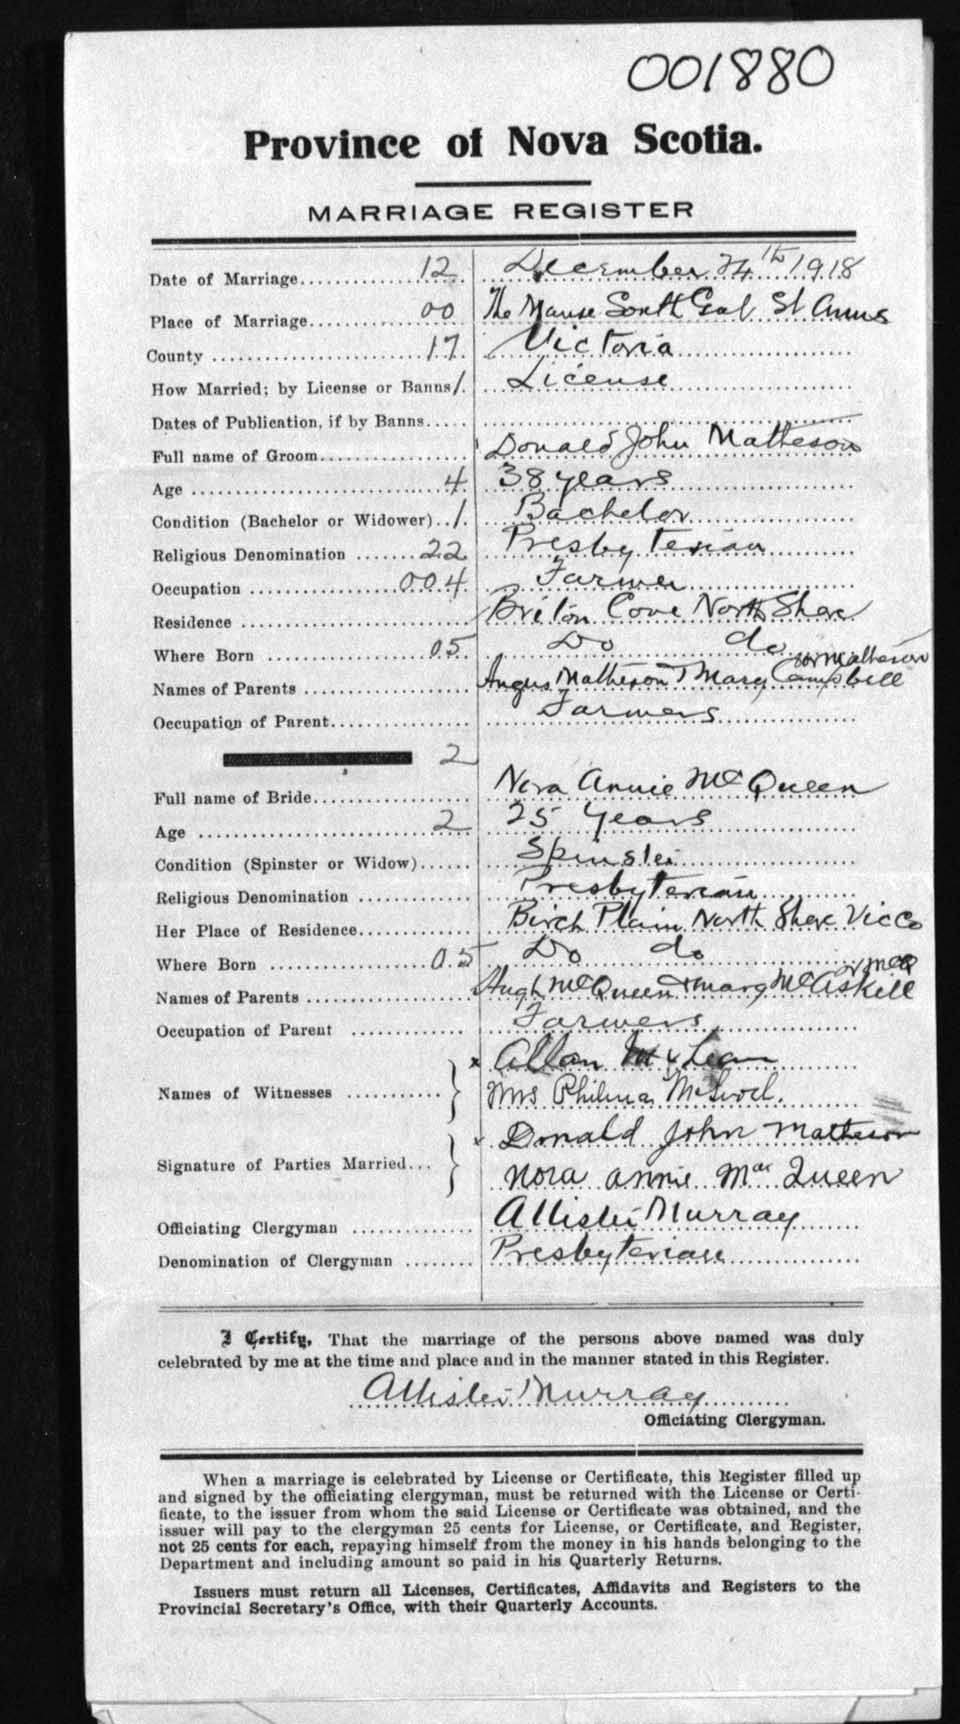 001880
Province of Nova Scotia.
MARRIAGE REGISTER
Date of Marriage 12 December 24th 1918
Place of Marriage 00 The Manse South Gut St Anns
County 17 Victoria
How Married; by License or Banns 1 License
Dates of Publication, if by Banns
Full name of Groom Donald John Matheson
Age 4 38 years
Condition (Bachelor or Widower) 1 Bachelor
Religious Denomination 22 Presbyterian
Occupation 004 Farmer
Residence Briton Cove North Shore
Where Born 05 Do do
Names of Parents Angus Matheson & Mary Campbell or Matheson
Occupation of Parent Farmers
2
Full name of Bride Nora Annie McQueen
Age 2 25 Years
Condition (Spinster or Widow) Spinster
Religious Denomination Presbyterian
Her Place of Residence Birch Plain North Shore Vic Co
Where Born 05 Do do
Names of Parents Hugh McQueen & Mary McAskill or McQ
Occupation of Parent Farmers
Names of Witnesses x Allan McLean
Mrs Philma
Signature of Parties Married x Donald John Matheson
Nora Annie Mac Queen
Officiating Clergyman Allister Murray
Denomination of Clergyman Presbyterian
I Certify, That the marriage of the persons above named was duly
celebrated by me at the time and place and in the manner stated in this Register.
Allister Murray
Officiating Clergyman.
When a marriage is celebrated by License or Certificate, this Register filled up
and signed by the officiating clergyman, must be returned with the License or Certi-
ficate, to the issuer from whom the said License or Certificate was obtained, and the
issuer will pay to the clergyman 25 cents for License, or Certificate, and Register,
not 25 cents for each, repaying himself from the money in his hands belonging to the
Department and including amount so paid in his Quarterly Returns.
Issuers must return all Licenses, Certificates, Affidavits and Registers to the
Provincial Secretary's Office, with their Quarterly Accounts.